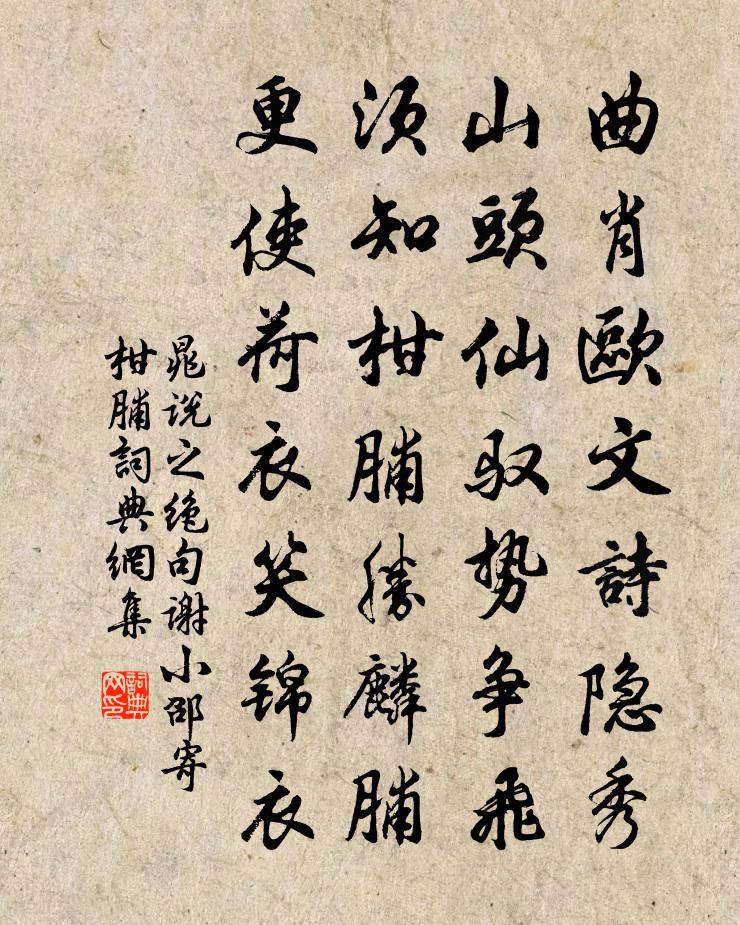 曲肖歐文詩隐秀
山頭仙驭势争飛
須知柑脯勝麟脯
更使荷衣笑锦衣
晁说之绝句谢小邵寄
柑脯詞典網集
詞典网印